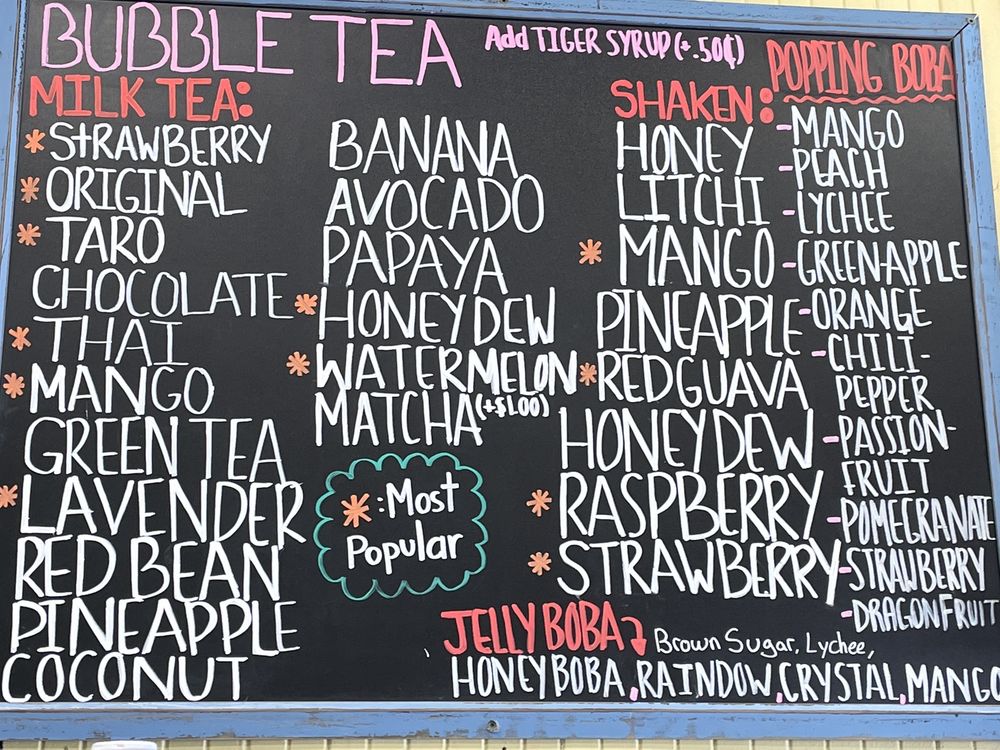 BUBBLE TEA
Add TIGER SYRUP (+ .50¢)
MILK TEA:
* STRAWBERRY
* ORIGINAL
* TARO
CHOCOLATE
* THAI
* MANGO
GREEN TEA
* LAVENDER
RED BEAN
PINEAPPLE
COCONUT
BANANA
AVOCADO
PAPAYA
* HONEYDEW
* WATERMELON
MATCHA (+$1.00)
* : Most
Popular
SHAKEN:
HONEY
LITCHI
* MANGO
PINEAPPLE
* RED GUAVA
HONEYDEW
* RASPBERRY
* STRAWBERRY
POPPING BOBA
- MANGO
- PEACH
- LYCHEE
- GREEN-APPLE
- ORANGE
- CHILI-
PEPPER
- PASSION-
FRUIT
- POMEGRANATE
- STRAWBERRY
- DRAGONFRUIT
JELLY BOBA
Brown Sugar, Lychee,
HONEY BOBA, RAINDOW, CRYSTAL, MANGO